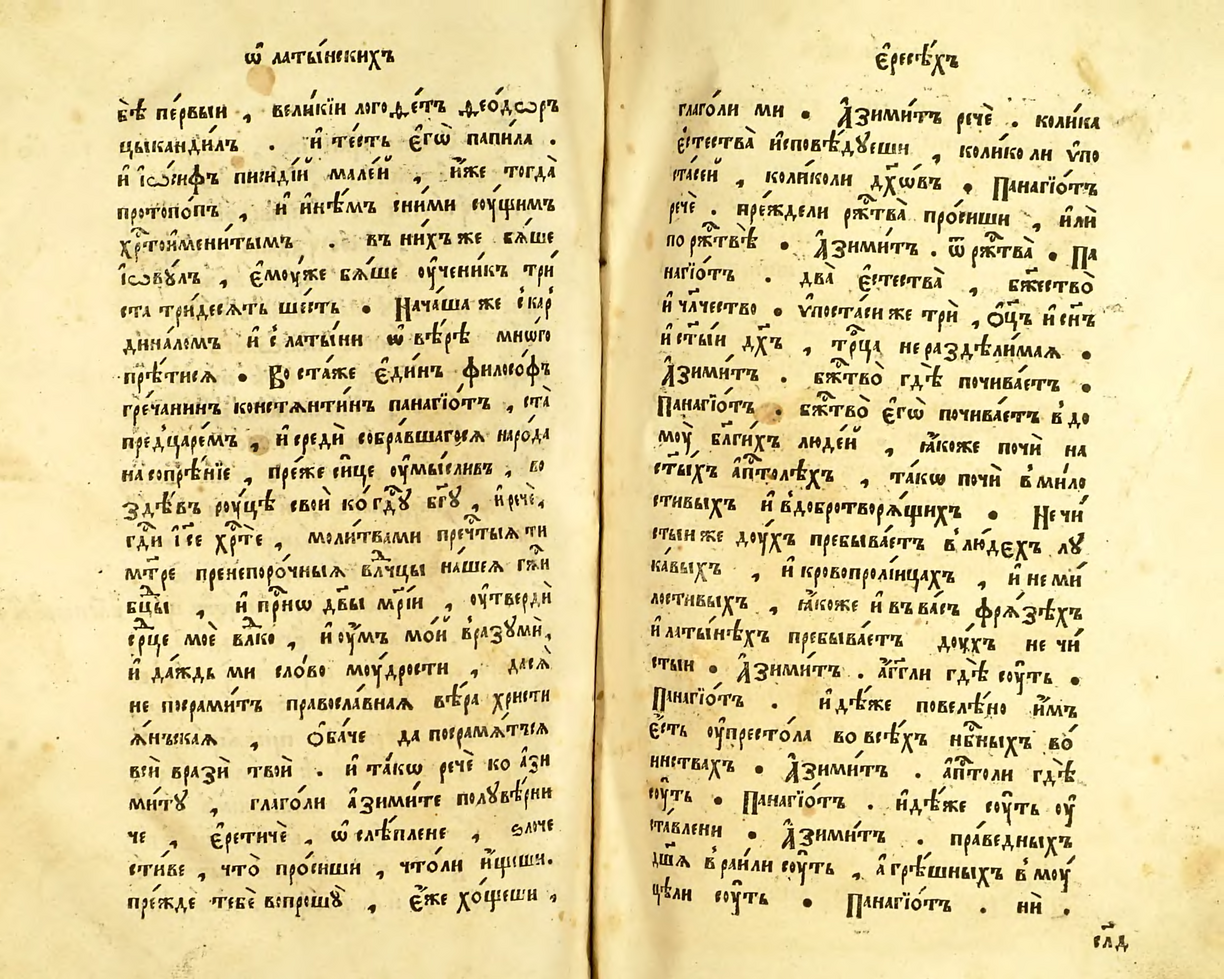 ѿ латы́нскихъ
бѣ̀ пе́рвыи , вели́кїи логоѳе́тъ ѳео́дѡръ
цыкандил́ъ . и҆ те́сть є҆гѡ̀ папи́ла .
и҆ і҆ѡ́сифъ писиді́й мале́й , и҆́же тогда̀
протопо́пъ , и҆ и҆нѣ́мъ сни́ми соу́щимъ
хрⷭ҇тои҆мени́тымъ . въ ни́хъ же бѧ́ше
і҆ѡвꙋ́лъ , є҆моу́же бѧ́ше оу҆чени́къ три́
ста три́десѧть ше́сть • Нача́ша же с кар
дина́ломъ и҆ с латы́ни ѡ вѣ́рѣ мно́гѡ
прѣ́тисѧ • Во ста́же є҆ди́нъ филосо́фъ
гре́чанинъ констѧнти́нъ панагїо́тъ , ста̀
предцаре́мъ , и҆ средѝ собра́вшагосѧ наро́да
на сопрѣ́нїе , пре́же си́це оу҆мы́сливъ , во
здѣ́въ роу́цѣ своѝ ко гдⷭ҇ꙋ бг҃ꙋ , и҆ речѐ ,
гдⷭ҇и і҆с҃е хрⷭ҇те , моли́твами пречⷭ҇тыѧ ти
мт҃ре пренепоро́чныѧ влⷣчцы на́шеѧ гж҃и
бцⷣы , и҆ прⷭ҇нѡ дв҃ы мр҃і́и , оу҆твердѝ
срⷣце моѐ влⷣко , и҆ оу҆́мъ мо́й вразꙋмѝ ,
и҆ да́ждь ми сло́во моу́дрости , дасѧ̀
не посрами́тъ правосла́внаѧ вѣ́ра христи
ѧ́нъскаѧ , Ѻ҆ба́че да посрамѧ́тъсѧ
всѝ вразѝ твоѝ . и҆ та́кѡ речѐ ко а҆зи
ми́тꙋ , глаго́ли а҆зими́те полꙋвѣ́рни
че , є҆ретичѐ , ѡ слѣ́плене , ѕлоче
сти́ве , что̀ про́сиши , что́ли и҆́щеши .
пре́жде тебѐ вспрошꙋ̀ , є҆́же хо́щеши ,
є҆ресѣ́хъ
глаго́ли ми • А҆зими́тъ речѐ . коли́ка
є҆стества̀ и҆сповѣ́дꙋеши , коли́ко ли ѵ҆по
ста́сей , коли́коли дх҃ѡ́въ • Панагїо́тъ
речѐ . пре́ждели ржⷭ҇тва̀ про́сиши , и҆лѝ
по ржⷭ҇твѣ̀ • А҆зими́тъ . ѿ ржⷭ҇тва̀ • Па
нагїо́тъ . два̀ є҆стества̀ , бж҃ество̀
и҆ чл҃чество • ѵ҆поста́си же трѝ , ѻ҆ц҃ъ и҆ сн҃ъ
и҆ ст҃ы́и дх҃ъ , трⷪ҇ца нераздѣли́маѧ •
А҆зими́тъ . бжⷭ҇тво̀ гдѣ̀ почива́етъ •
Панагїо́тъ . бжⷭ҇тво̀ є҆гѡ̀ почива́етъ в до
моу̀ бл҃ги́хъ люде́й , ꙗ҆́коже почѝ на
ст҃ы́хъ а҆пⷭ҇толѣхъ , та́кѡ почѝ в ми́ло
стивыхъ и҆ в добротворѧ́щихъ • Не чи́
стыи же доу́хъ пребыва́етъ в лю́дєхъ лꙋ
ка́выхъ , и҆ кровопроли́ицахъ , и҆ не ми́
лостивыхъ , ꙗ҆́коже и҆ въ ва́съ фрѧ́зѣхъ
и҆ латы́нѣхъ пребыва́етъ доу́хъ не чи́
стыи • А҆зими́тъ . а҆́гг҃ли гдѣ̀ соу́ть •
Панагїо́тъ . и҆дѣ́же повелѣ́но и҆̀мъ
є҆́сть оу҆престо́ла во всѣ́хъ нбⷭ҇ныхъ во́
инствахъ • А҆зими́тъ . а҆пⷭ҇толи гдѣ̀
соу́ть • Панагїо́тъ . и҆дѣ́же соу́ть оу҆
ста́влени • А҆зими́тъ . пра́ведныхъ
дш҃ѧ в ра́и ли соу́ть , а҆ грѣ́шныхъ в моу́
цѣ ли соу́ть • Панагїо́тъ . нѝ .
слⷣ